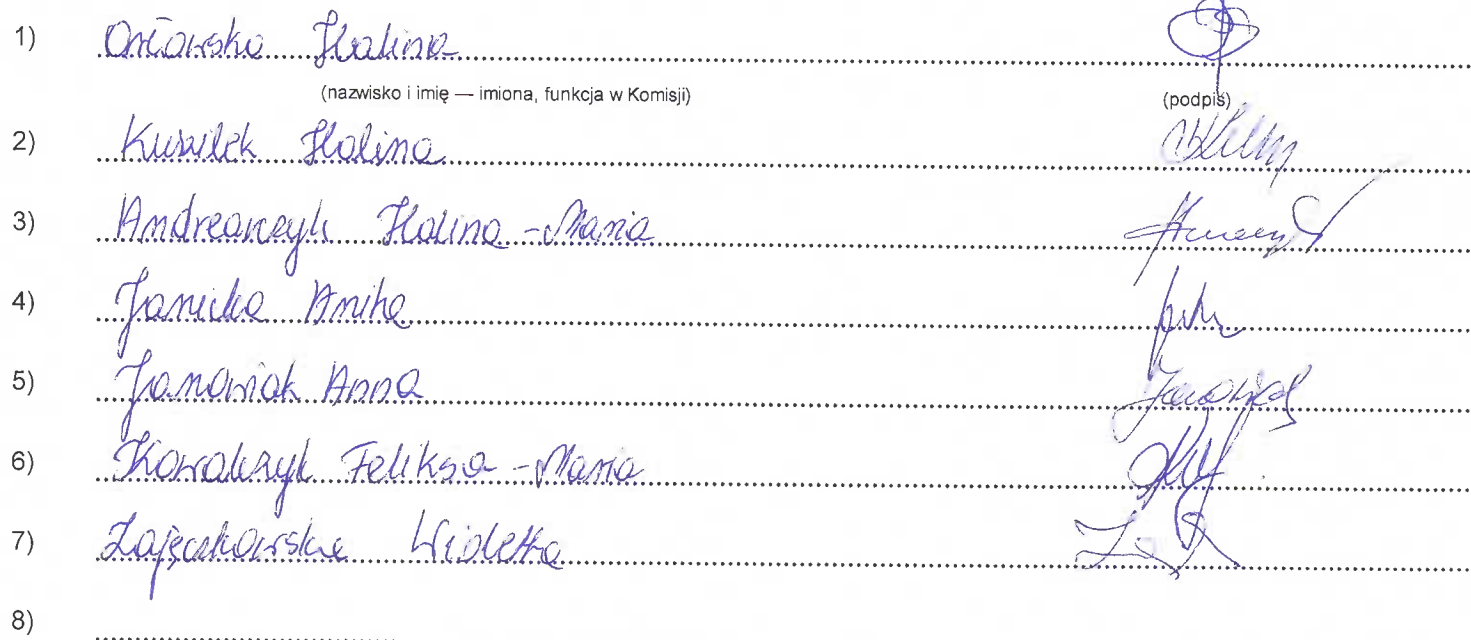 1) Orłowska Halina
(nazwisko i imię — imiona, funkcja w Komisji) (podpis)
2) Halina
3) Andrearczyk Halina - Maria
4) Janicka Anita
5) Janowiak Anna
6) Kowalczyk Feliksa - Maria
7) Zajączkowska Wioletta
8)